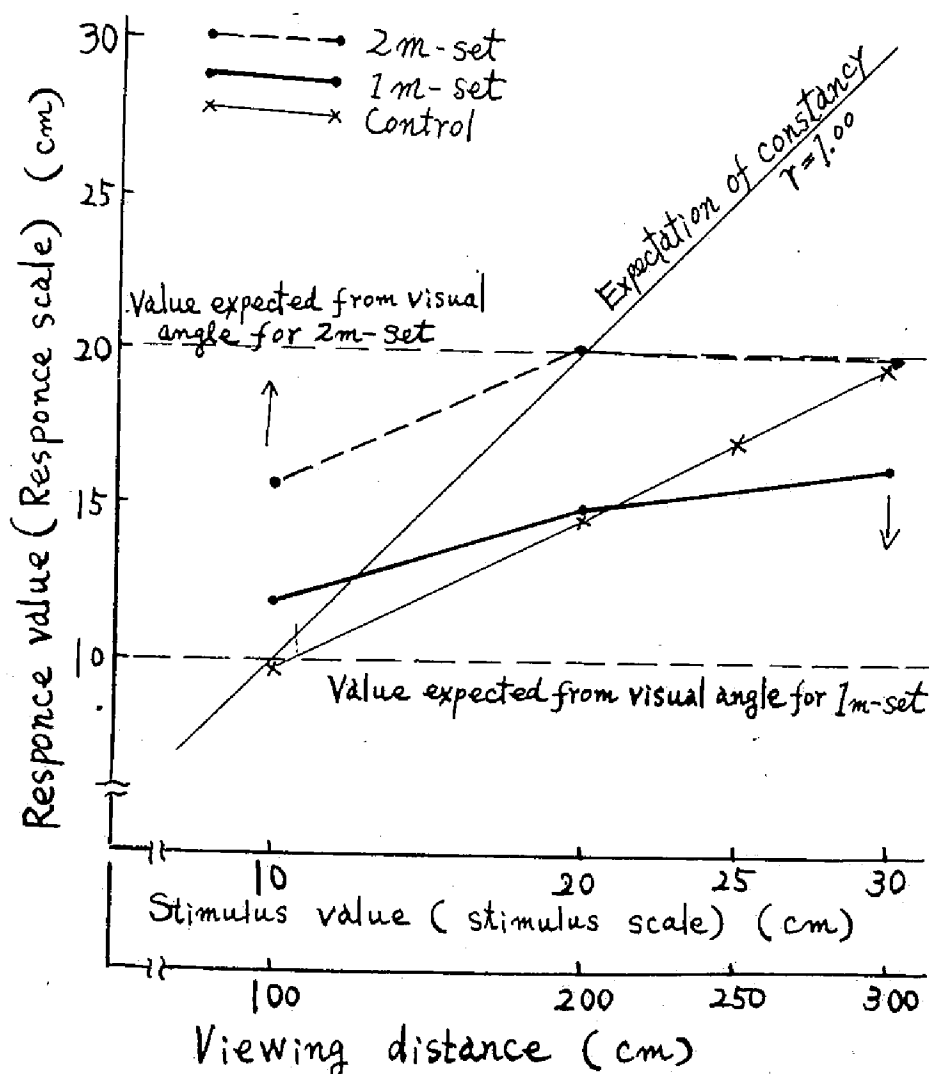 30
2m-set
1m-set
Control
25
20
15
10
Responce value (Responce scale) (cm)
Expectation of constancy
r=1.00
Value expected from visual
angle for 2m-set
Value expected from visual angle for 1m-set
10 20 25 30
Stimulus value (stimulus scale) (cm)
100 200 250 300
Viewing distance (cm)